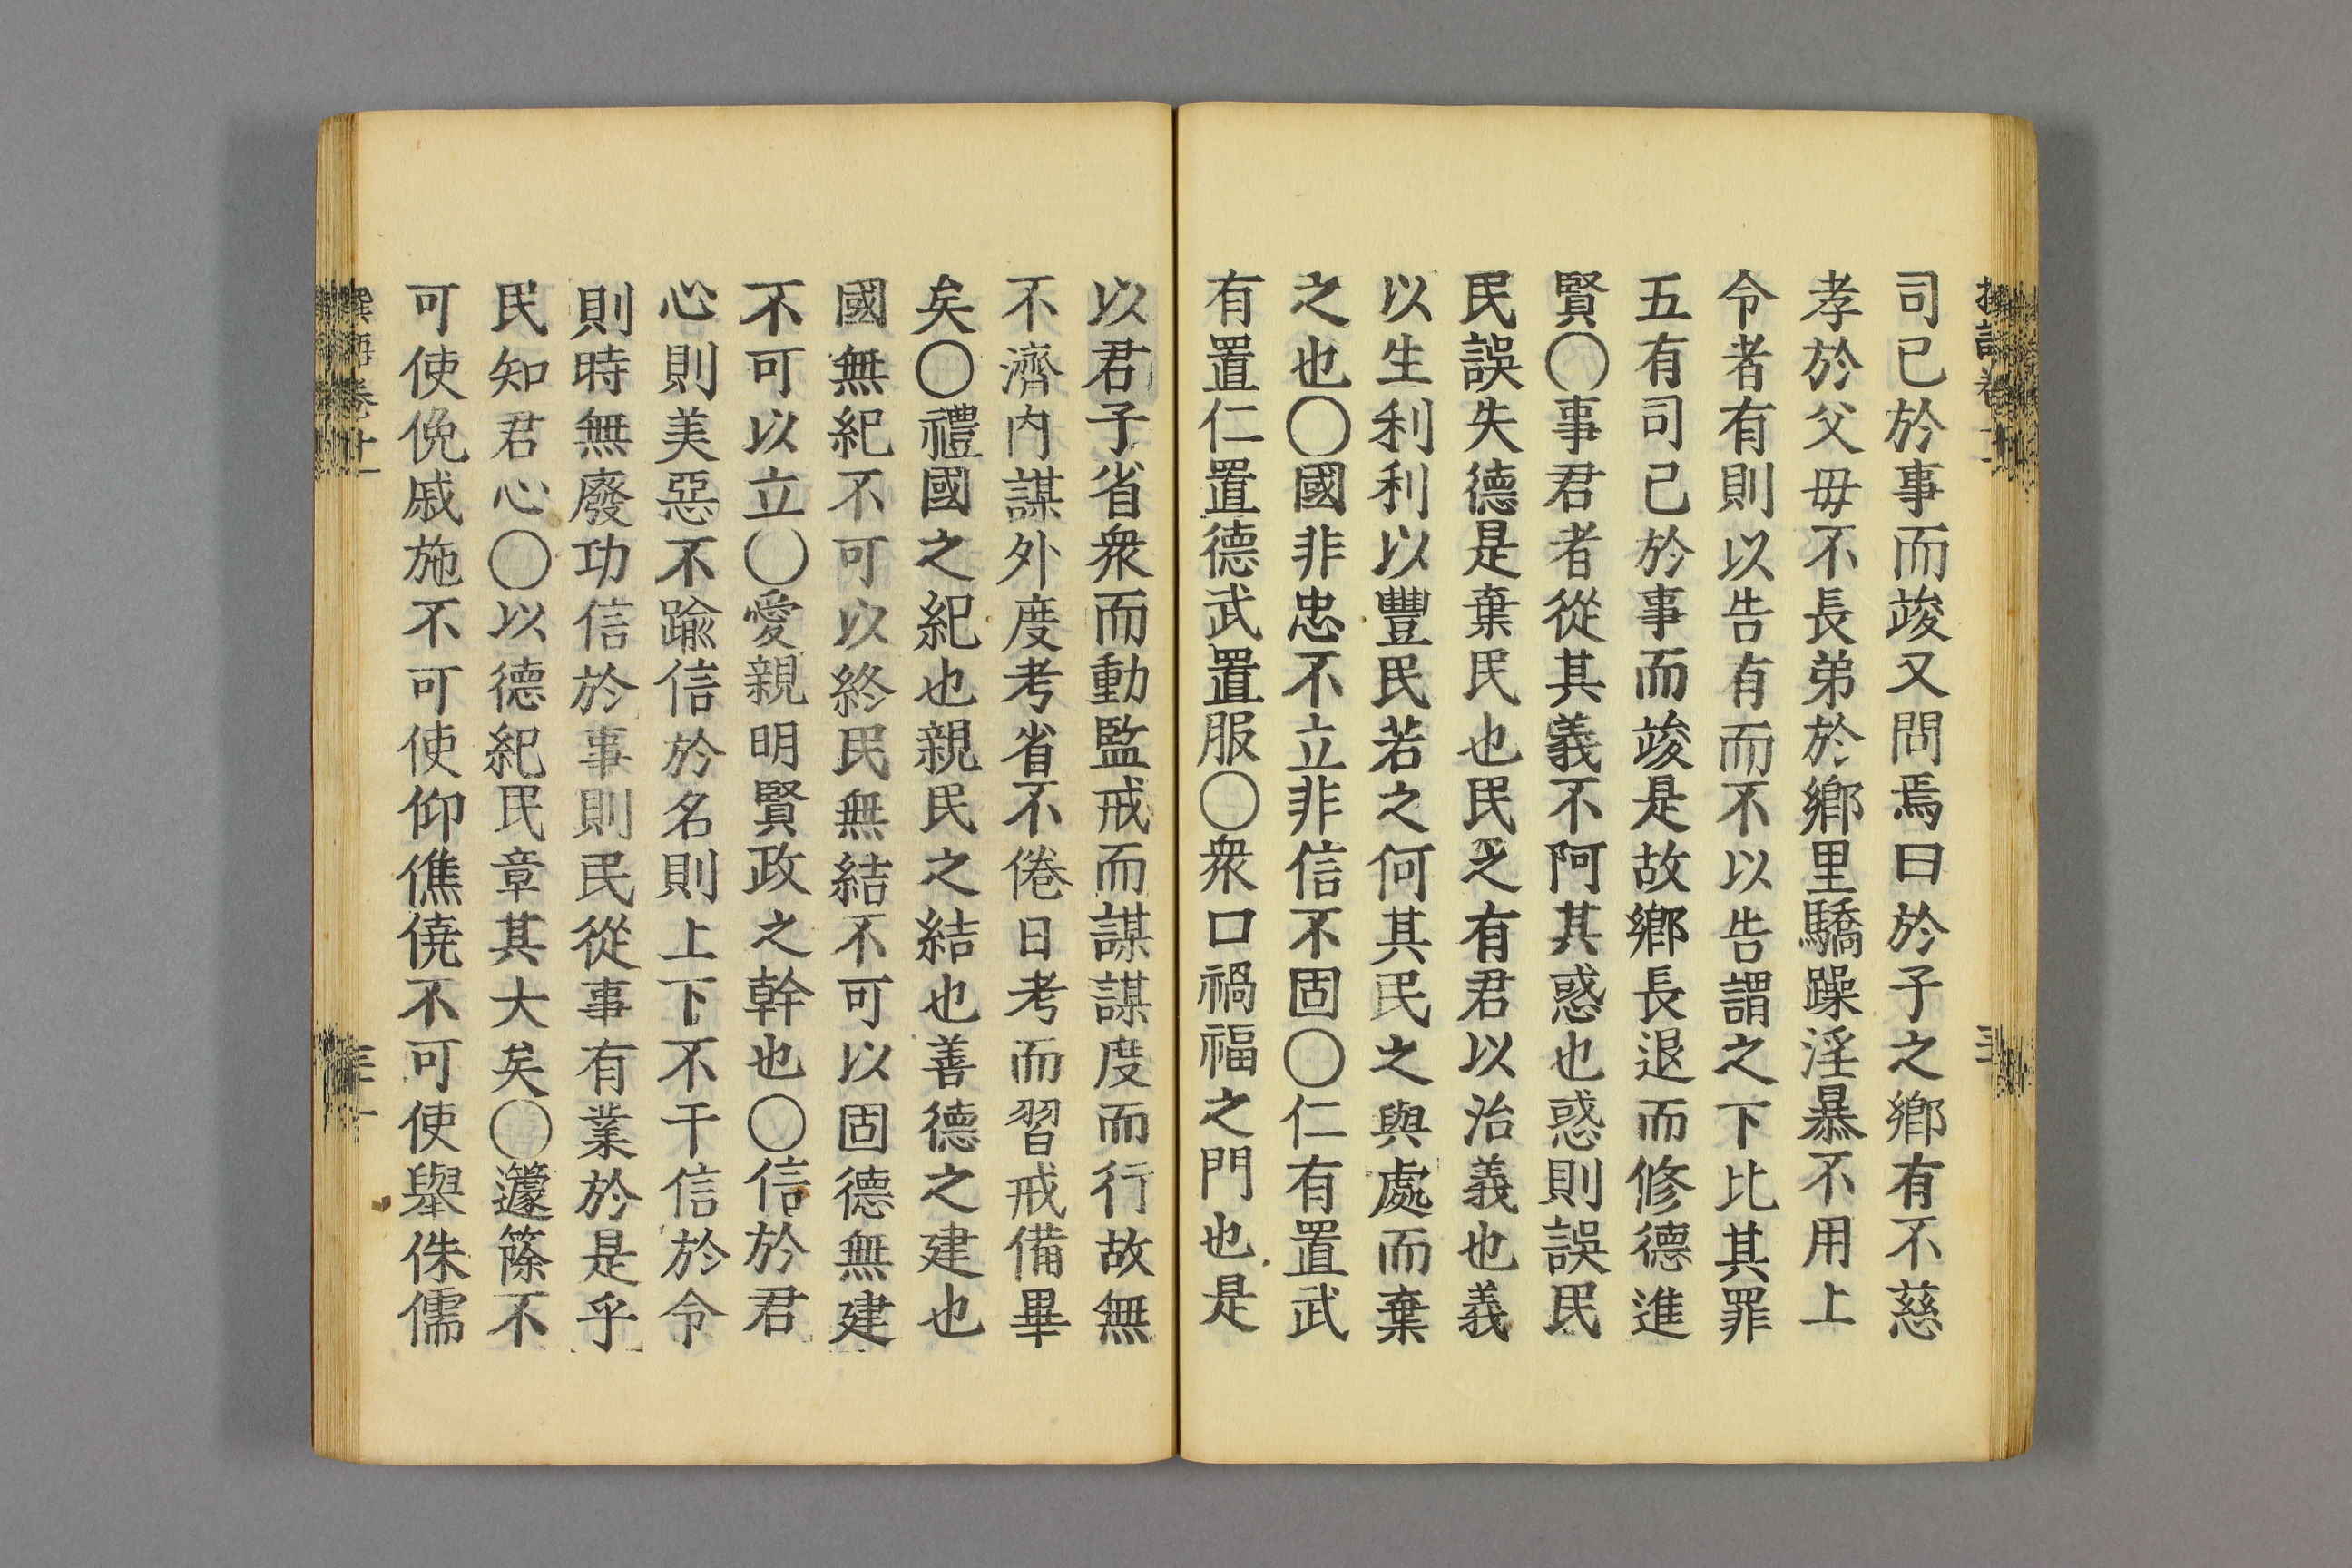 司已於事而竣又問焉曰於子之鄉有不慈
孝於父毋不長弟於鄉里驕躁淫暴不用上
令者有則以告有而不以告謂之下比其罪
五有司已於事而竣是故鄉長退而修德進
賢〇事君者從其義不阿其惑也惑則誤民
民誤失德是棄民也民之有君以治義也義
以生利利以豐民若之何其民之與處而棄
之也〇國非忠不立非信不固〇仁有置武
有置仁置德武置服〇衆口禍福之門也是
以君子省衆而動監戒而謀謀度而行故無
不濟內謀外度考省不倦日考而習戒備畢
矣〇禮國之紀也親民之結也善德之建也
國無紀不可以終民無結不可以固德無建
不可以立〇愛親明賢政之幹也〇信於君
心則美惡不踰信於名則上下不干信於令
則時無廢功信於事則民從事有業於是乎
民知君心〇以德紀民章其大矣〇籧篨不
可使俛戚施不可使仰僬僥不可使舉侏儒
卷廿一
三十一